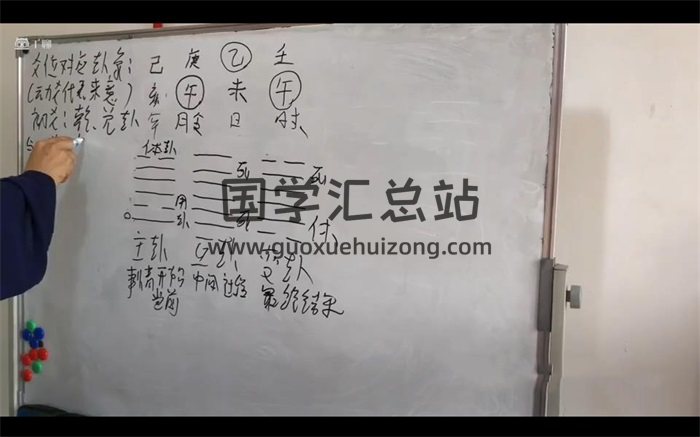 爻位对应卦象： 己 庚 乙 壬
（动爻代表来意） 亥 午 未 午
初爻：乾、兑卦 年 月 日 时
体卦
死 死
用
卦 死 休
国学汇总站
www.guoxuehuizong.com
主卦 互卦 变卦
事情开始 中间过程 最终结果
当前